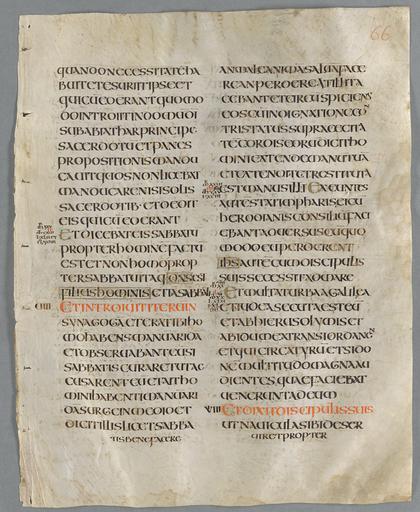 QUANDO NECESSITATE HA
BUIT ET ESURIIT IPSE ET
QUI CU EO ERANT QUOMO
DO INTROIIT IN DOMU DI
SUB ABIATHAR PRINCIPE
SACERDOTU ET PANES
PROPOSITIONIS MANDU
CAUIT QUOS NON LICEBAT
MANDUCARE NISI SOLIS
SACERDOTIB· ET DEDIT
EIS QUI CU EO ERANT
ET DICEBAT EIS SABBATU
PROPTER HOMINE FACTU
EST ET NON HOMO PROP
TER SABBATU ITAQ DNS EST
FILIUS HOMINIS ETIA SABBATI
ET INTROIUIT ITERU IN
SYNAGOGA ET ERAT IBI HO
MO HABENS MANU ARIDA
ET OBSERUABANT EU SI
SABBATIS CURARET UT AC
CUSARENT EU ET AIT HO
MINI HABENTI MANU ARI
DA SURGE IN MEDIO ET
DICIT ILLIS LICET SABBA
TIS BENEFACERE
66
AN MALE ANIMA SALUA FACE
RE AN PERDERE AT ILLI TA
CEBANT ET CIRCUSPICIENS
EOS CU INDIGNATIONE CON
TRISTATUS SUPER CAECITA
TE CORDIS EORU DICIT HO
MINI EXTENDE MANU TUA
ET EXTENDIT ET RESTITUTA
EST MANUS ILLI EXEUNTES
AUTE STATIM PHARISAEI CU
HERODIANIS CONSILIU FACI
EBANT ADUERSUS EU QUO
MODO EU PERDERENT
IHS AUTE CU DISCIPULIS
SUIS SECESSIT AD MARE
ET MULTA TURBA A GALILEA
ET IUDAEA SECUTA EST EU
ET AB HIERUSOLYMIS ET
AB IDUMEA ET TRANS IORDANEN
ET QUI CIRCA TYRU ET SIDO
NE MULTITUDO MAGNA AU
DIENTES QUAE FACIEBAT
UENERUNT AD EUM
VIII ET DIXIT DISCIPULIS SUIS
UT NAUICULA SIBI DESER
UIRET PROPTER